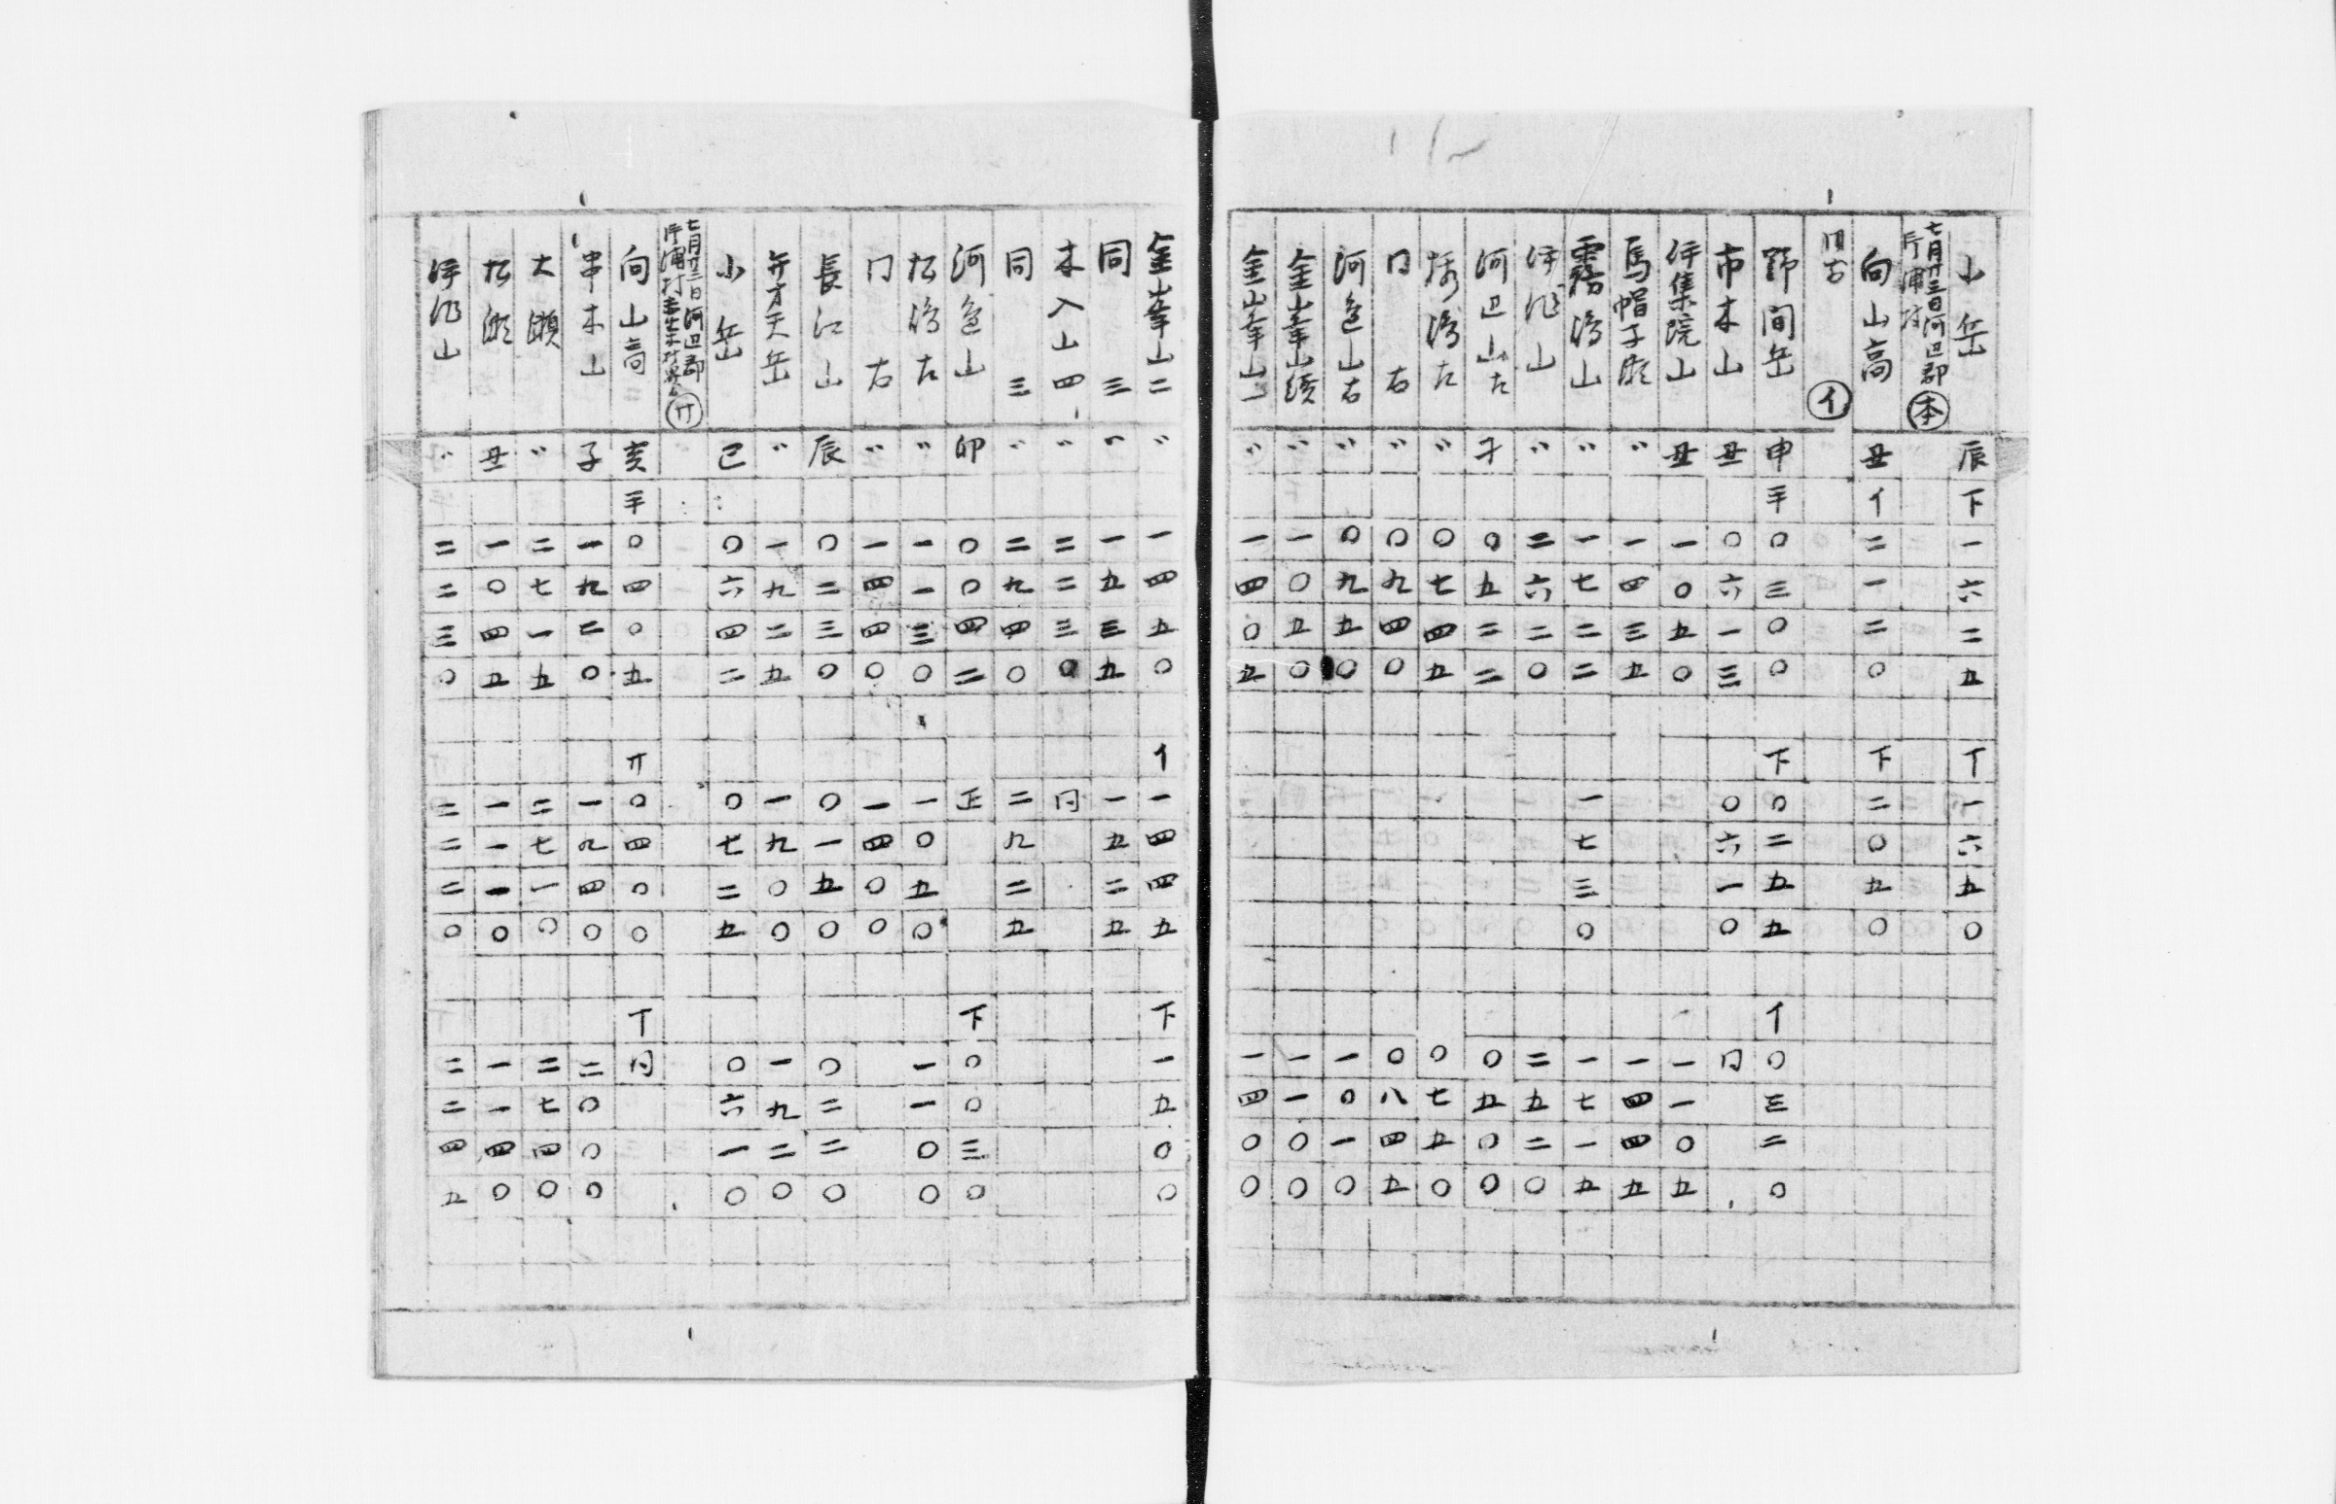 小岳 辰 下 一 六 二 五 丅 一 六 五 〇
七月廿三日河辺郡
片浦村 本
向山高 丑 イ 二 一 二 〇 下 二 〇 五 〇
同所 イ
野間岳 申 手 〇 三 〇 〇 下 〇 二 五 五 イ 〇 三 二 〇
市木山 丑 〇 六 一 三 〇 六 一 〇 同
伊集院山 丑 一 〇 五 〇 一 一 〇 五
馬帽子 〃 一 四 三 五 一 四 四 五
霧島山 〃 一 七 二 二 一 七 三 〇 一 七 一 五
伊作山 〃 二 六 二 〇 二 五 二 〇
河辺山左 子 〇 五 二 二 〇 五 〇 〇
左 〃 〇 七 四 五 〇 七 五 〇
同 右 〃 〇 九 四 〇 〇 八 四 五
河辺山右 〃 〇 九 五 〇 一 〇 一 〇
金峯山續 〃 一 〇 五 〇 一 一 〇 〇
金峯山一 〃 一 四 〇 五 一 四 〇 〇
金峯山二 〃 一 四 五 〇 イ 一 四 四 五 下 一 五 〇 〇
同 三 〃 一 五 三 五 一 五 二 五
木入山四 〃 二 二 三 〇 同
同 三 〃 二 九 四 〇 二 九 二 五
河邑山 卯 〇 〇 四 二 正 下 〇 〇 三 〇
松島左 〃 一 一 三 〇 一 〇 五 〇 一 一 〇 〇
同 右 〃 一 四 四 〇 一 四 〇 〇
長江山 辰 〇 二 三 〇 〇 一 五 〇 〇 二 二 〇
弁才天岳 〃 一 九 二 五 一 九 〇 〇 一 九 二 〇
小岳 巳 〇 六 四 二 〇 七 二 五 〇 六 一 〇
七月廿三日河辺郡
片浦村
向山高二 亥 手 〇 四 〇 五 丌 〇 四 〇 〇 丅 同
串木山 子 一 九 二 〇 一 九 四 〇 二 〇 〇 〇
大瀬 〃 二 七 一 五 二 七 一 〇 二 七 四 〇
松瀬 丑 一 〇 四 五 一 一 一 〇 一 一 四 〇
伊作山 〃 二 二 三 〇 二 二 二 〇 二 二 四 五